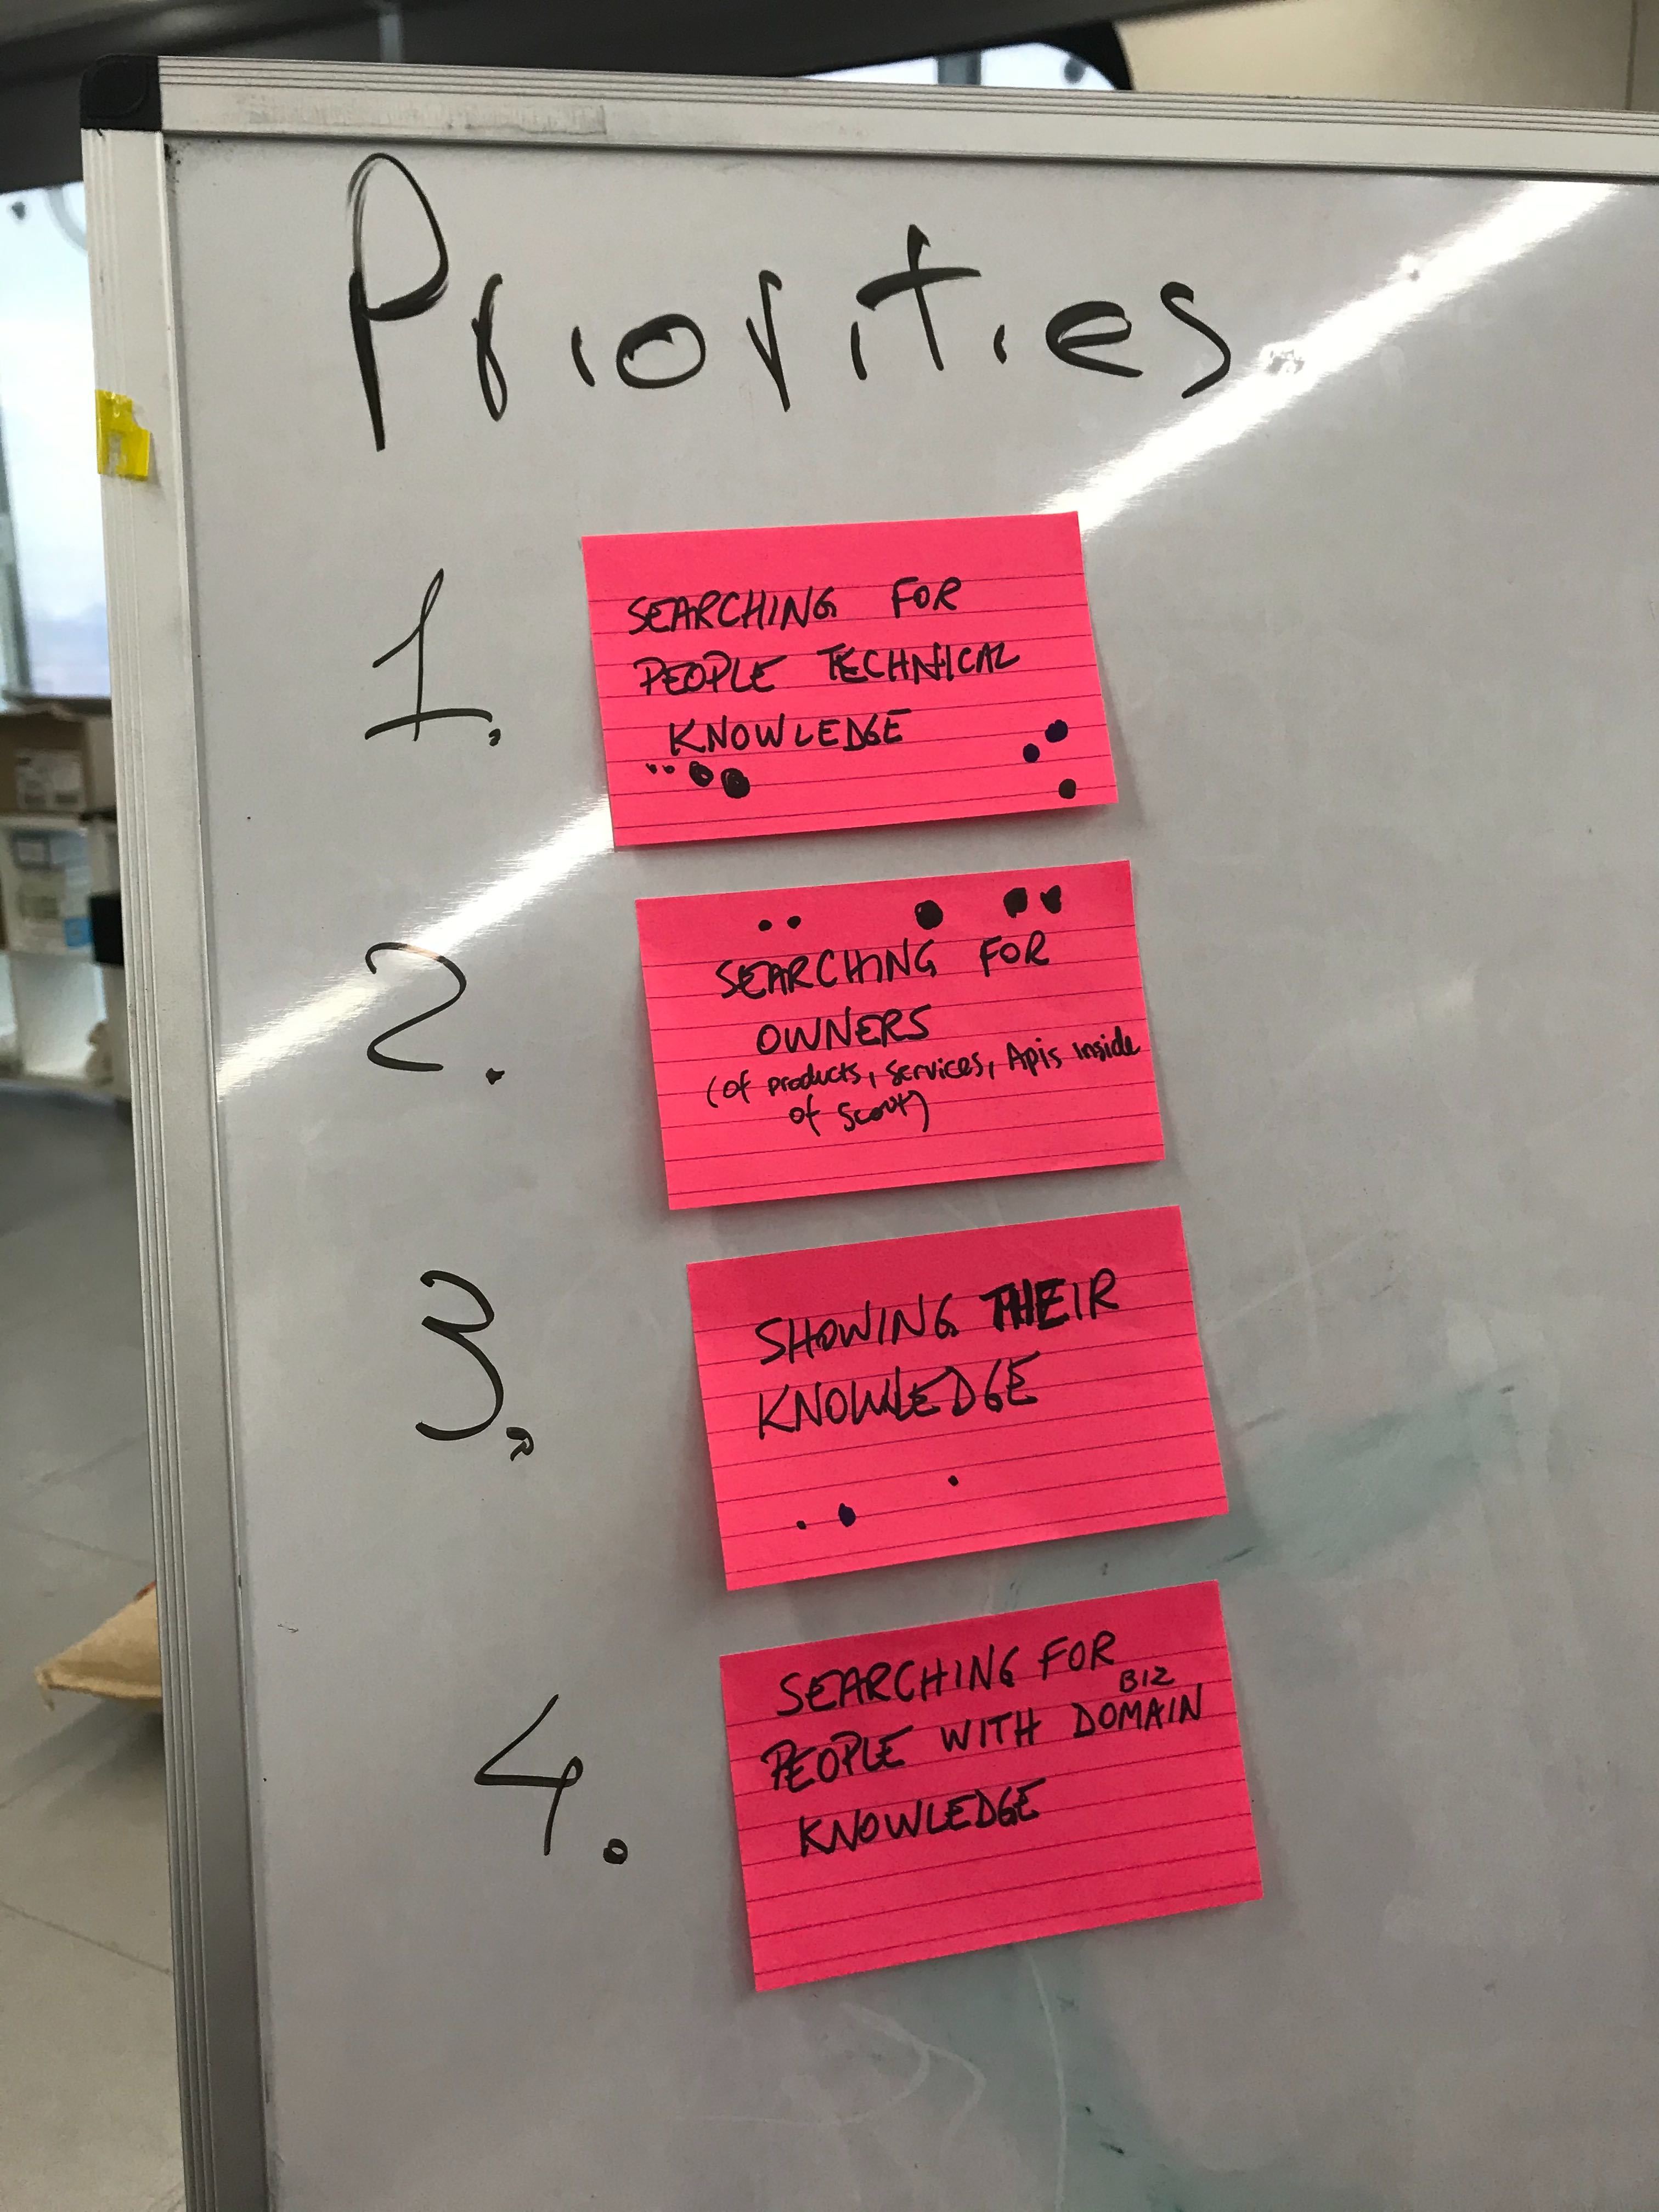 Priorities
1.
SEARCHING FOR
PEOPLE TECHNICAL
KNOWLEDGE
2.
SEARCHING FOR
OWNERS
(of products, services, Apis inside
of Scout)
3.
SHOWING THEIR
KNOWLEDGE
4.
SEARCHING FOR
BIZ
PEOPLE WITH DOMAIN
KNOWLEDGE